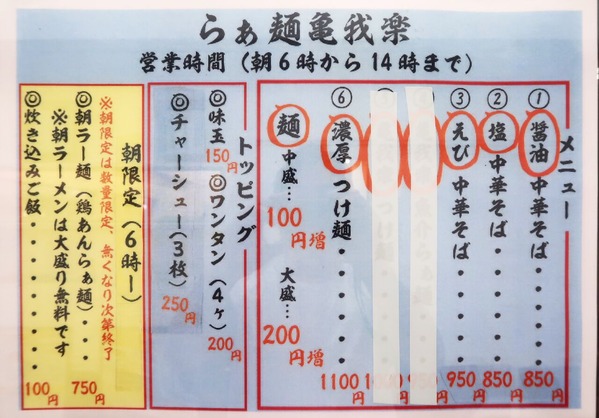 らぁ麺亀我楽
営業時間（朝6時から14時まで）
メニュー
①醤油中華そば・・・・・850円
②塩中華そば・・・・・850円
③えび中華そば・・・・・950円
⑥濃厚つけ麺・・・・・1100円
麺 中盛…100円増 大盛…200円増
トッピング
◎味玉150円 ◎ワンタン（4ヶ）200円
◎チャーシュー（3枚）250円
朝限定（6時ー）
※朝限定は数量限定、無くなり次第終了
◎朝ラー麺（鶏あんらぁ麺）・・・750円
※朝ラーメンは大盛り無料です
◎炊き込みご飯・・・・・・・・100円